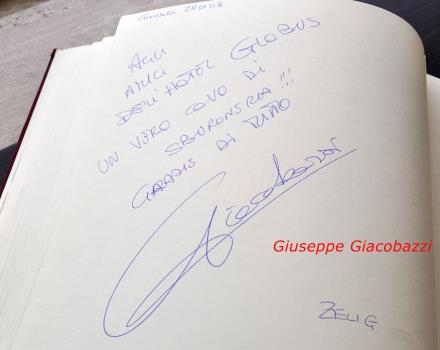 28.01.08
AGLI
AMICI
DELL'HOTEL GLOBUS
UN VERO COVO DI
SBORONERIA!!!
GRAZIE DI TUTTO
Giacobazzi
Giuseppe Giacobazzi
ZELIG